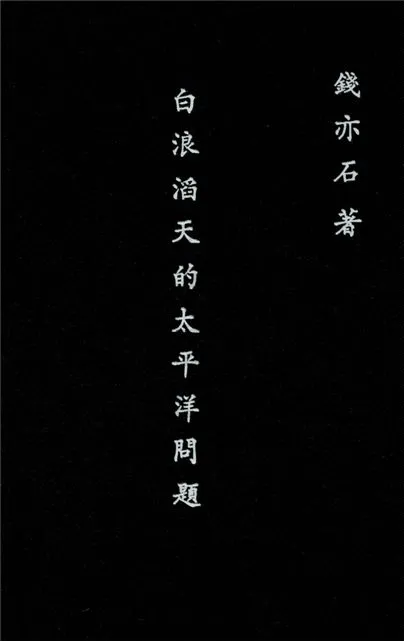 錢亦石著
白浪滔天的太平洋問題